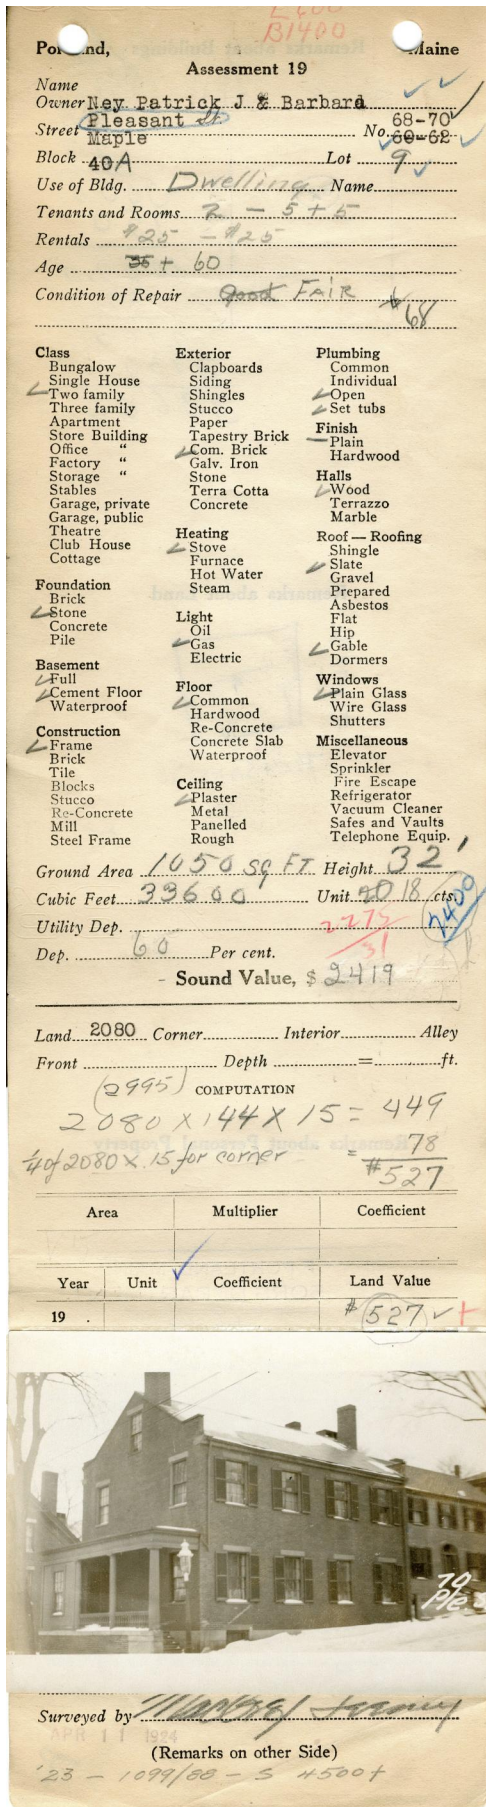 B1400
Portland, Maine
Assessment 19
Name
Owner Ney Patrick J & Barbara
Pleasant St. 68-70
Street Maple No. 60-62
Block 40A Lot 9
Use of Bldg. Dwelling Name
Tenants and Rooms 2 - 5 + 5
Rentals $25 - $25
Age 35 + 60
Condition of Repair Good FAIR
$68
Class
Bungalow
Single House
Two family
Three family
Apartment
Store Building
Office "
Factory "
Storage "
Stables
Garage, private
Garage, public
Theatre
Club House
Cottage
Foundation
Brick
Stone
Concrete
Pile
Basement
Full
Cement Floor
Waterproof
Construction
Frame
Brick
Tile
Blocks
Stucco
Re-Concrete
Mill
Steel Frame
Exterior
Clapboards
Siding
Shingles
Stucco
Paper
Tapestry Brick
Com. Brick
Galv. Iron
Stone
Terra Cotta
Concrete
Heating
Stove
Furnace
Hot Water
Steam
Light
Oil
Gas
Electric
Floor
Common
Hardwood
Re-Concrete
Concrete Slab
Waterproof
Ceiling
Plaster
Metal
Panelled
Rough
Plumbing
Common
Individual
Open
Set tubs
Finish
Plain
Hardwood
Halls
Wood
Terrazzo
Marble
Roof — Roofing
Shingle
Slate
Gravel
Prepared
Asbestos
Flat
Hip
Gable
Dormers
Windows
Plain Glass
Wire Glass
Shutters
Miscellaneous
Elevator
Sprinkler
Fire Escape
Refrigerator
Vacuum Cleaner
Safes and Vaults
Telephone Equip.
Ground Area 1050 SQ FT Height 32'
Cubic Feet 33600 Unit 20 18 cts.
2400
Utility Dep. 2275
31
Dep. 60 Per cent.
- Sound Value, $ 2419
Land 2080 Corner Interior Alley
Front Depth = ft.
(2995) COMPUTATION
2080 X 144 X 15 = 449
1/4 of 2080 X .15 for corner = 78
$527
Area Multiplier Coefficient
Year Unit Coefficient Land Value
19 . $ 527
70
Ple
Surveyed by
APR 11 1924
(Remarks on other Side)
'23 - 1099/88 - S 4500+